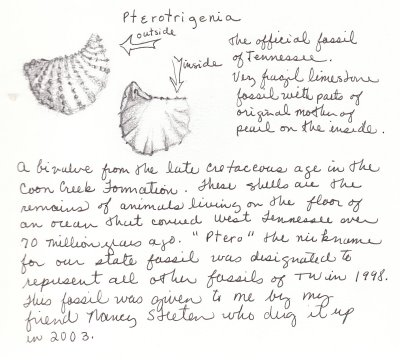 Pterotrigenia
outside
inside
The official fossil
of Tennessee.
Very fragil limestone
fossil with parts of
original mother of
pearl on the inside.
A bivalve from the late Cretaceous age in the
Coon Creek Formation. These shells are the
remains of animals living on the floor of
an ocean that covered West Tennessee over
70 million years ago. "Ptero" the nickname
for our state fossil was designated to
represent all other fossils of TN in 1998.
This fossil was given to me by my
friend Nancy who dug it up
in 2003.